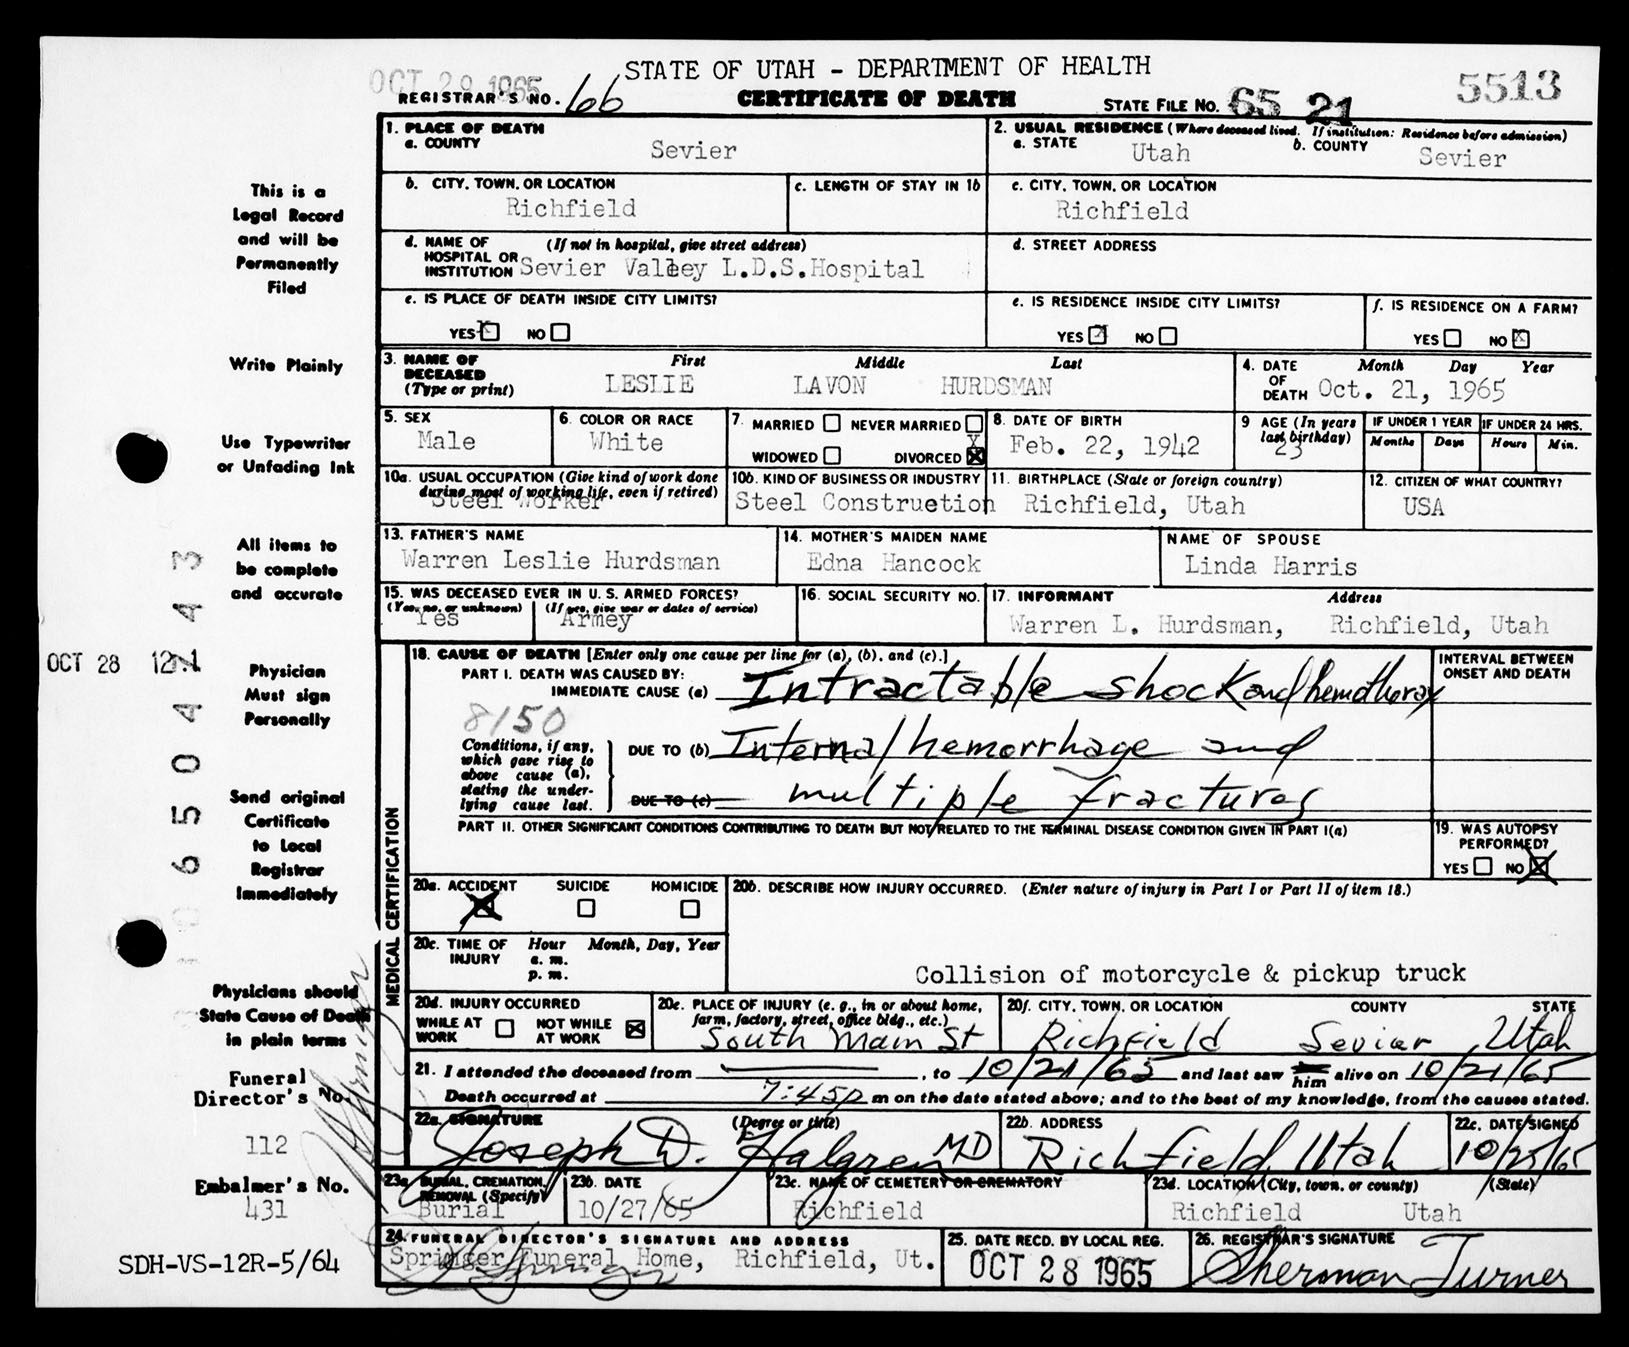 OCT 29 1965
STATE OF UTAH - DEPARTMENT OF HEALTH
5513
REGISTRAR'S NO. 66
CERTIFICATE OF DEATH
STATE FILE NO. 65 21
1. PLACE OF DEATH
a. COUNTY
Sevier
2. USUAL RESIDENCE (Where deceased lived. If institution: Residence before admission)
a. STATE
Utah
b. COUNTY
Sevier
b. CITY, TOWN, OR LOCATION
Richfield
c. LENGTH OF STAY IN 1b
c. CITY, TOWN, OR LOCATION
Richfield
d. NAME OF HOSPITAL OR INSTITUTION
(If not in hospital, give street address)
Sevier Valley L.D.S.Hospital
d. STREET ADDRESS
e. IS PLACE OF DEATH INSIDE CITY LIMITS?
YES X NO
e. IS RESIDENCE INSIDE CITY LIMITS?
YES X NO
f. IS RESIDENCE ON A FARM?
YES NO X
3. NAME OF DECEASED (Type or print)
First Middle Last
LESLIE LAVON HURDSMAN
4. DATE OF DEATH
Month Day Year
Oct. 21, 1965
5. SEX
Male
6. COLOR OR RACE
White
7. MARRIED NEVER MARRIED
WIDOWED DIVORCED X
8. DATE OF BIRTH
Feb. 22, 1942
9 AGE (In years last birthday)
23
IF UNDER 1 YEAR
Months Days
IF UNDER 24 HRS.
Hours Min.
10a. USUAL OCCUPATION (Give kind of work done during most of working life, even if retired)
Steel Worker
10b. KIND OF BUSINESS OR INDUSTRY
Steel Construetion
11. BIRTHPLACE (State or foreign country)
Richfield, Utah
12. CITIZEN OF WHAT COUNTRY?
USA
13. FATHER'S NAME
Warren Leslie Hurdsman
14. MOTHER'S MAIDEN NAME
Edna Hancock
NAME OF SPOUSE
Linda Harris
15. WAS DECEASED EVER IN U.S. ARMED FORCES?
(Yes, no, or unknown)
Yes
(If yes, give war or dates of service)
Armey
16. SOCIAL SECURITY NO.
17. INFORMANT Address
Warren L. Hurdsman, Richfield, Utah
18. CAUSE OF DEATH [Enter only one cause per line for (a), (b), and (c).]
PART I. DEATH WAS CAUSED BY:
IMMEDIATE CAUSE (a) Intractable shock and hemothorax
8150
Conditions, if any, which gave rise to above cause (a), stating the underlying cause last.
DUE TO (b) Internal hemorrhage and
DUE TO (c) multiple fractures
INTERVAL BETWEEN ONSET AND DEATH
PART II. OTHER SIGNIFICANT CONDITIONS CONTRIBUTING TO DEATH BUT NOT RELATED TO THE TERMINAL DISEASE CONDITION GIVEN IN PART I(a)
19. WAS AUTOPSY PERFORMED?
YES NO X
MEDICAL CERTIFICATION
20a. ACCIDENT SUICIDE HOMICIDE
X
20b. DESCRIBE HOW INJURY OCCURRED. (Enter nature of injury in Part I or Part II of item 18.)
Collision of motorcycle & pickup truck
20c. TIME OF INJURY
Hour Month, Day, Year
a. m.
p. m.
20d. INJURY OCCURRED
WHILE AT WORK NOT WHILE AT WORK X
20e. PLACE OF INJURY (e. g., in or about home, farm, factory, street, office bldg., etc.)
South Main St
20f. CITY, TOWN, OR LOCATION COUNTY STATE
Richfield Sevier Utah
21. I attended the deceased from , to 10/21/65 and last saw him alive on 10/21/65
Death occurred at 7:45p m on the date stated above; and to the best of my knowledge, from the causes stated.
22a. SIGNATURE (Degree or title)
Joseph D. Halgren MD
22b. ADDRESS
Richfield, Utah
22c. DATE SIGNED
10/25/65
23a BURIAL, CREMATION, REMOVAL (Specify)
Burial
23b. DATE
10/27/65
23c. NAME OF CEMETERY OR CREMATORY
Richfield
23d. LOCATION (City, town, or county) (State)
Richfield Utah
24. FUNERAL DIRECTOR'S SIGNATURE AND ADDRESS
Springer Funeral Home, Richfield, Ut.
25. DATE RECD. BY LOCAL REG.
OCT 28 1965
26. REGISTRAR'S SIGNATURE
Sherman Turner
This is a
Legal Record
and will be
Permanently
Filed
Write Plainly
Use Typewriter
or Unfading Ink
All items to
be complete
and accurate
OCT 28
Physician
Must sign
Personally
Send original
Certificate
to Local
Registrar
Immediately
Physicians should
State Cause of Death
in plain terms
Funeral
Director's No.
112
Embalmer's No.
431
SDH-VS-12R-5/64